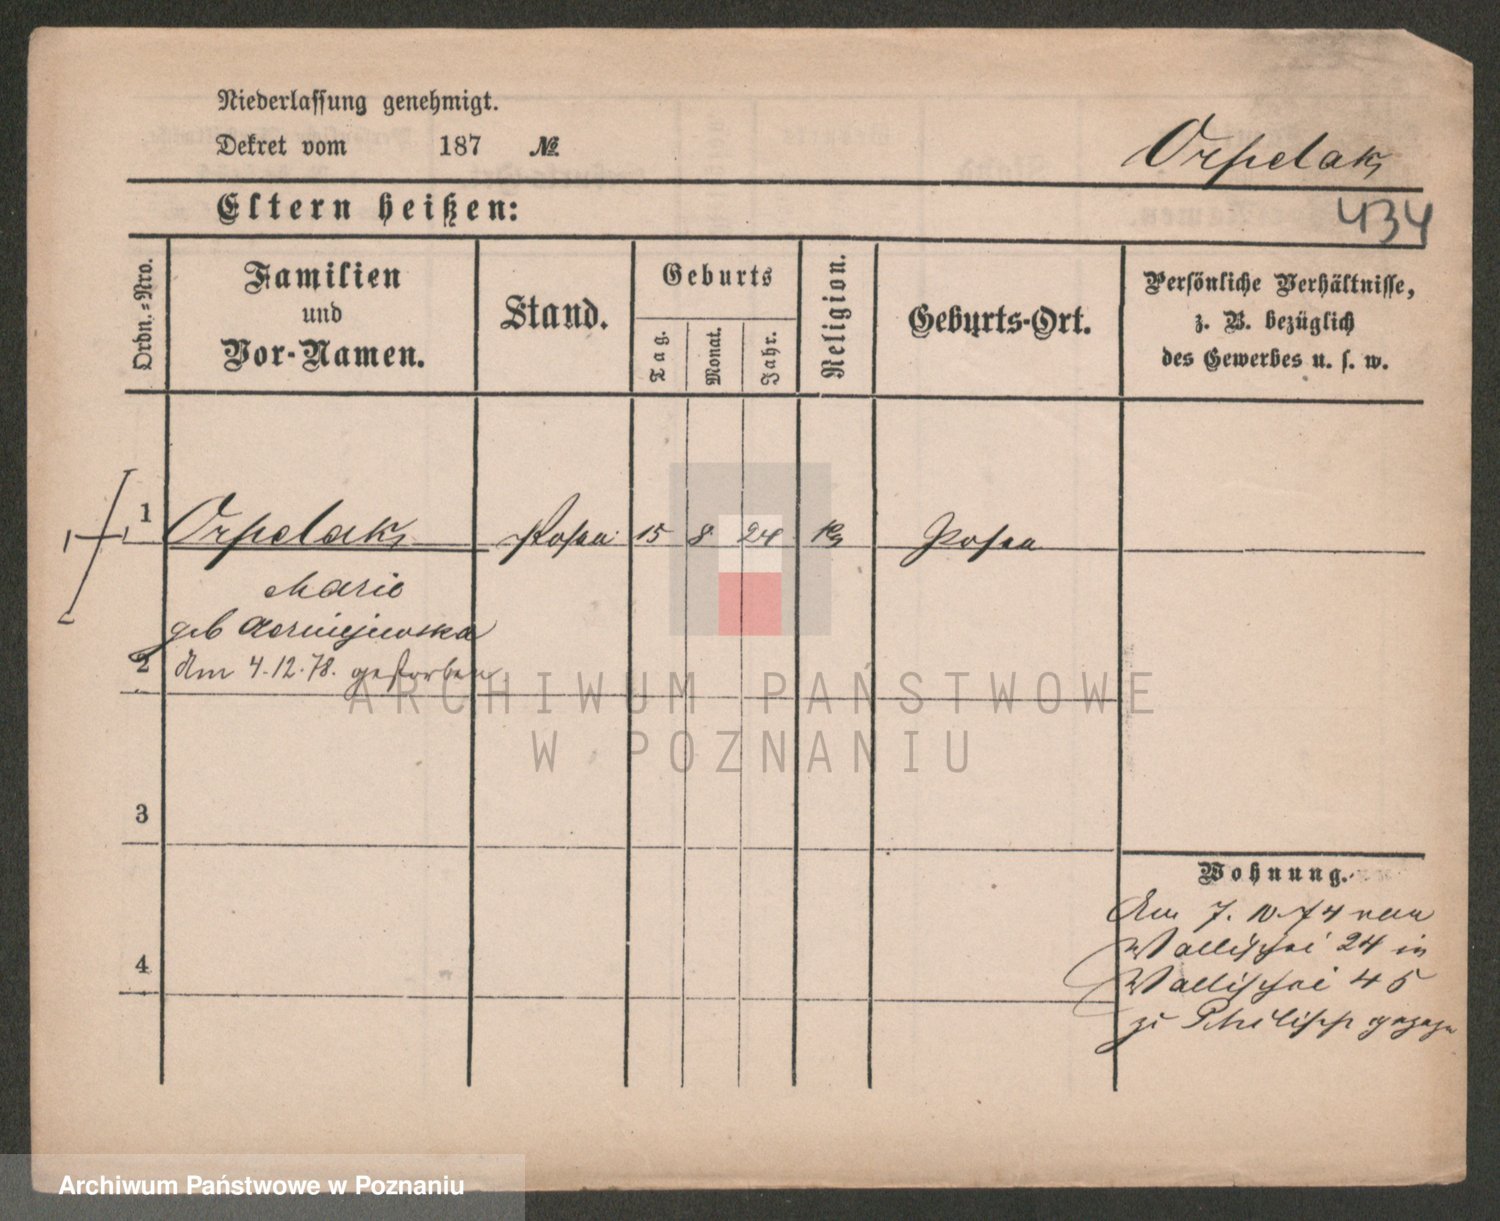 Niederlassung genehmigt.
Dekret vom 187 №
Orpelak
Eltern heißen:
434
Ordn.-Nro.
Familien
und
Vor-Namen.
Stand.
Geburts
Tag.
Monat.
Jahr.
Religion.
Geburts-Ort.
Persönliche Verhältnisse,
z. B. bezüglich
des Gewerbes u. s. w.
1 Orpelak 15 8 24 Posen
Marie
geb
2 Am 4.12.78. gestorben
ARCHIWUM PAŃSTWOWE
W POZNANIU
3
Wohnung.
Am 7. 10. 74 von
Wallischei 24 in
4 Wallischei 45
zu Philipp gezogen
Archiwum Państwowe w Poznaniu